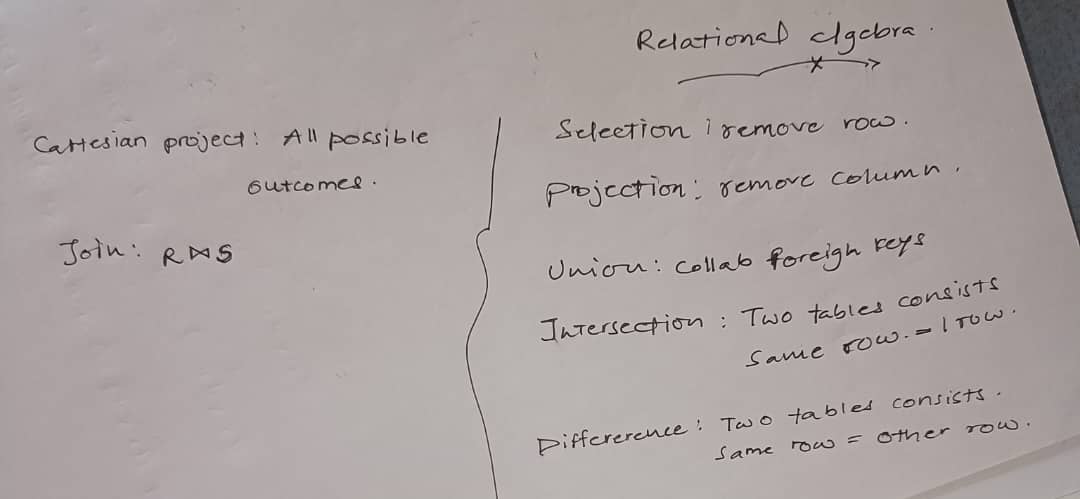 Relational algebra.
Cartesian project: All possible
outcomes.
Join: R⋈S
Selection : remove row.
Projection: remove column.
Union: collab foreigh keys
Intersection : Two tables consists
Same row. = 1 row.
Differerence: Two tables consists.
Same row = other row.